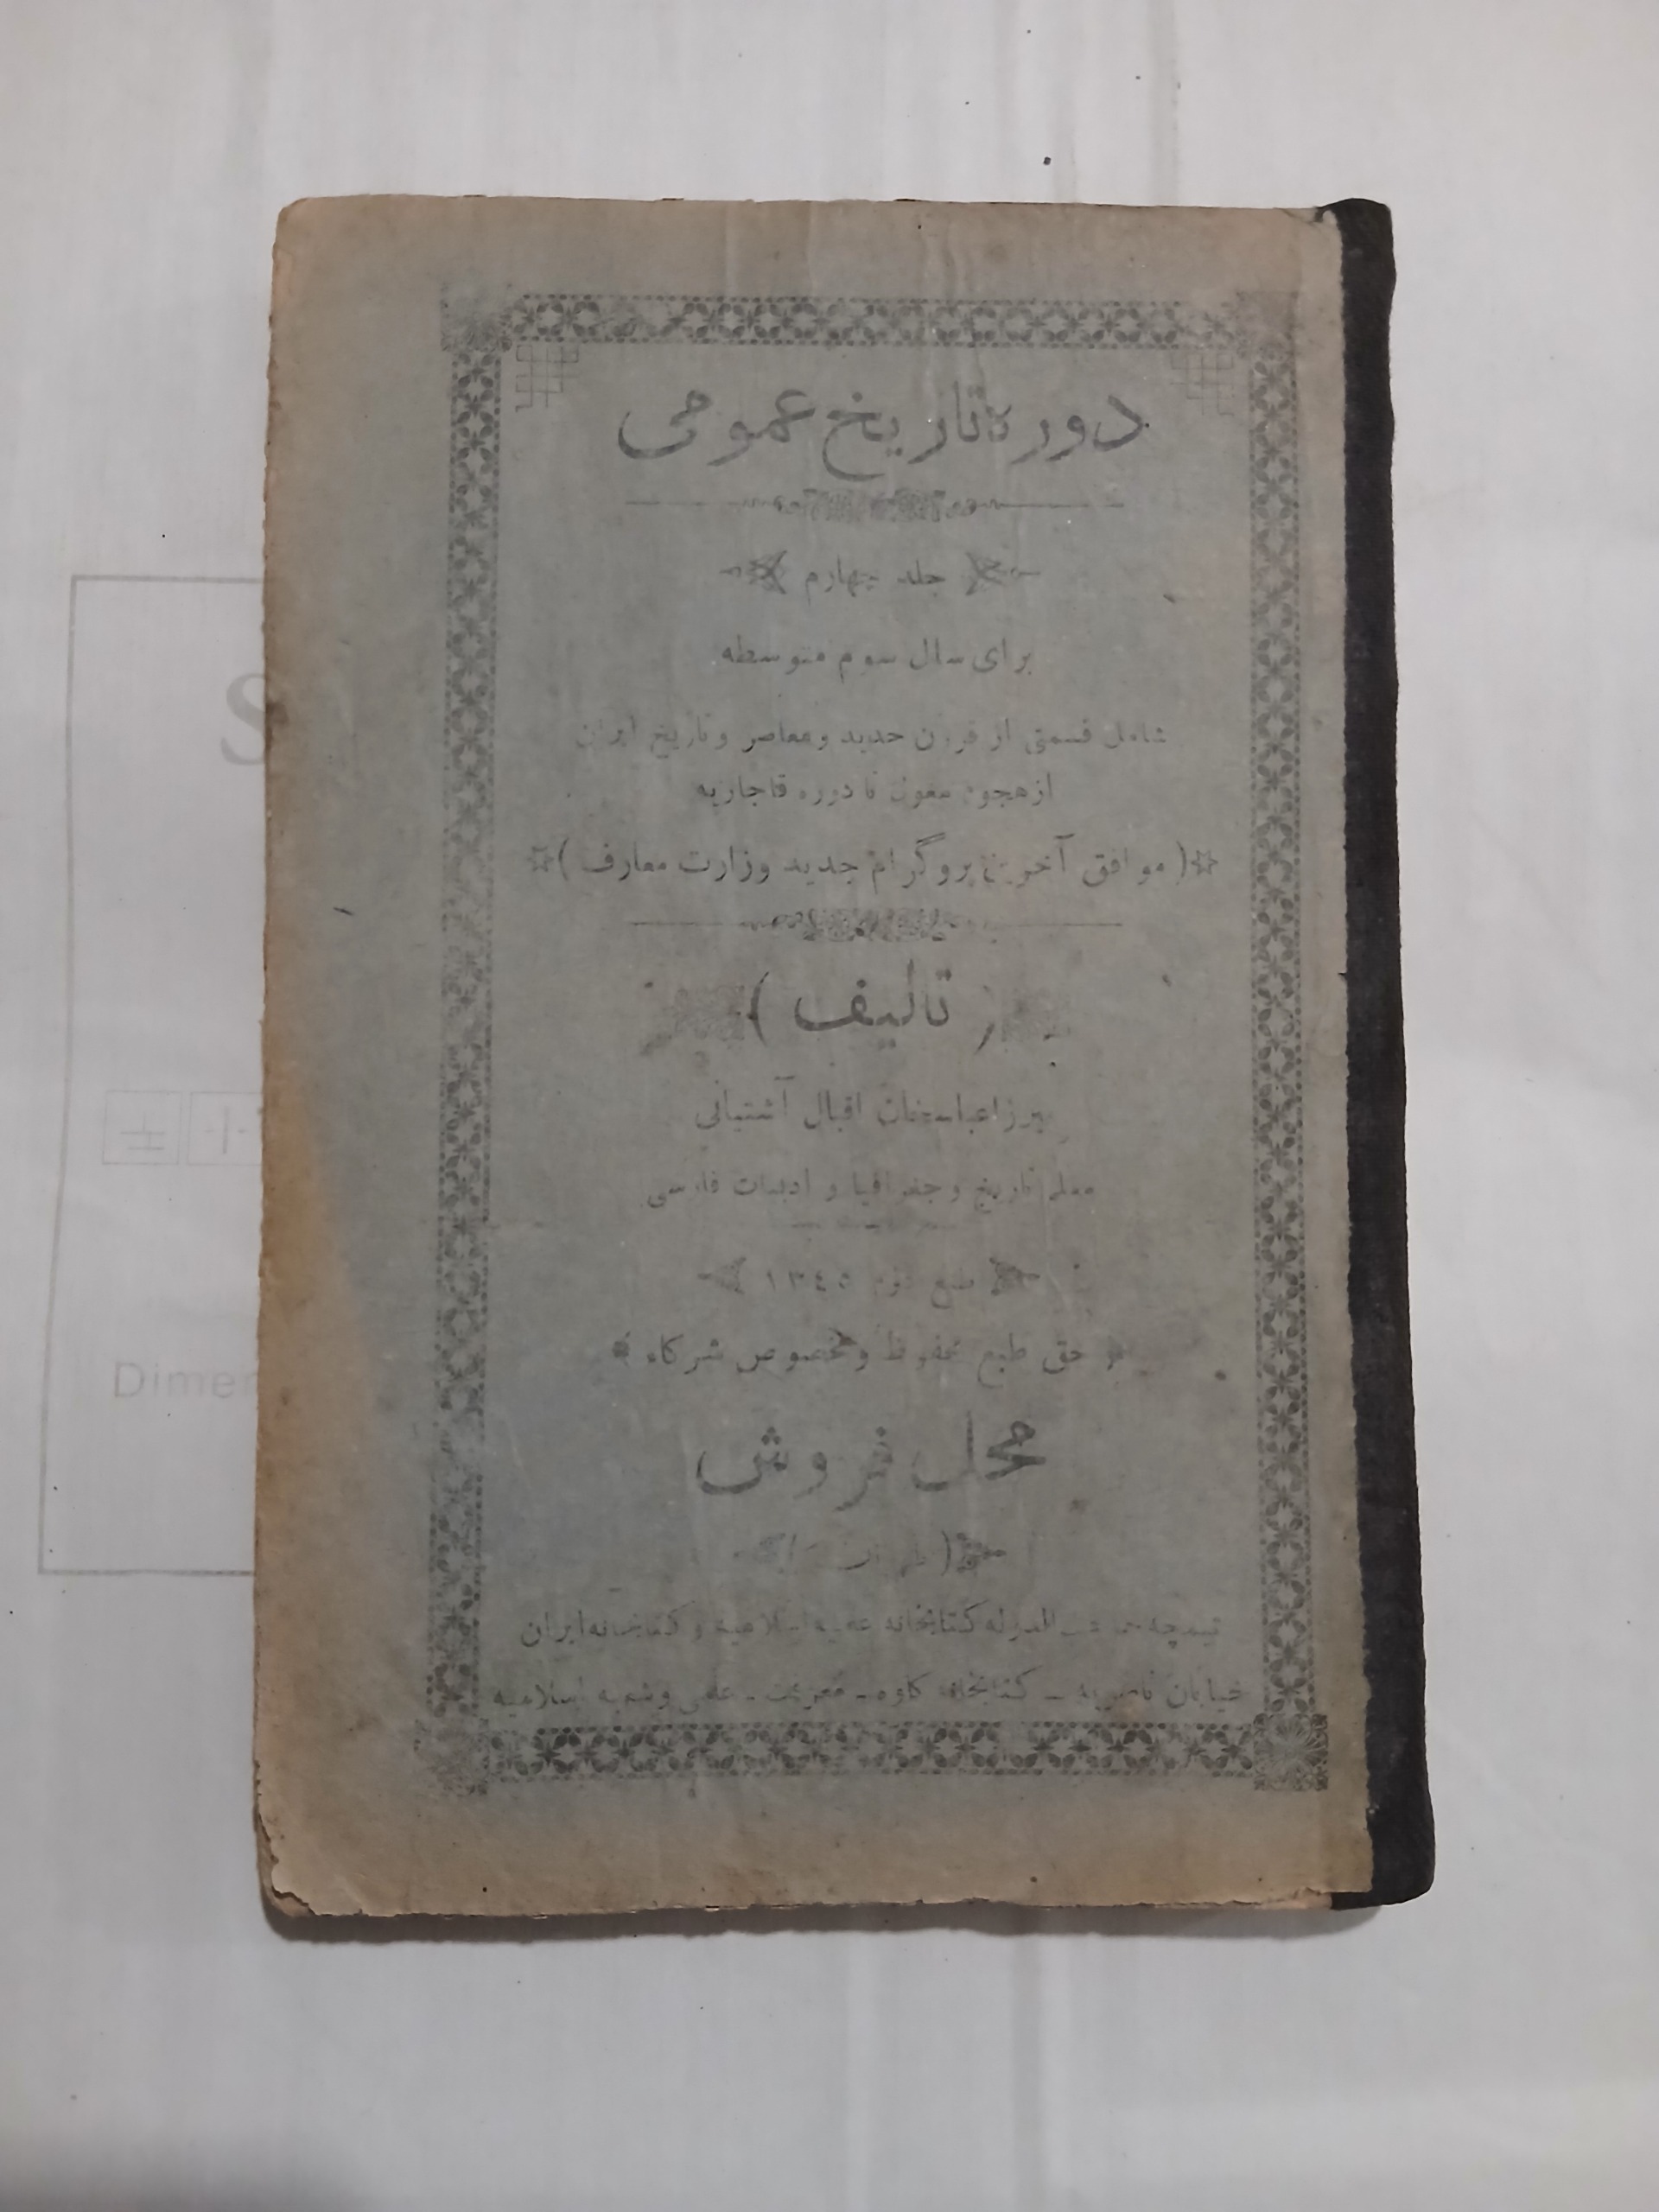 دوره تاریخ عمومی
جلد چهارم
برای سال سوم متوسطه
شامل قسمتی از قرون جدید و معاصر و تاریخ ایران
از هجوم مغول تا دوره قاجاریه
( موافق آخرین پروگرام جدید وزارت معارف )
( تألیف )
میرزا عباسخان اقبال آشتیانی
معلم تاریخ و جغرافیا و ادبیات فارسی
طبع ١٣٤٥
حق طبع محفوظ و مخصوص شرکاء
محل فروش
( طهران )
تیمچه حاجب الدوله کتابخانه اسلامیه و کتابخانه ایران
خیابان ناصریه ـ کتابخانه کاوه ـ معرفت ـ علمی و اسلامیه
S
Dimen